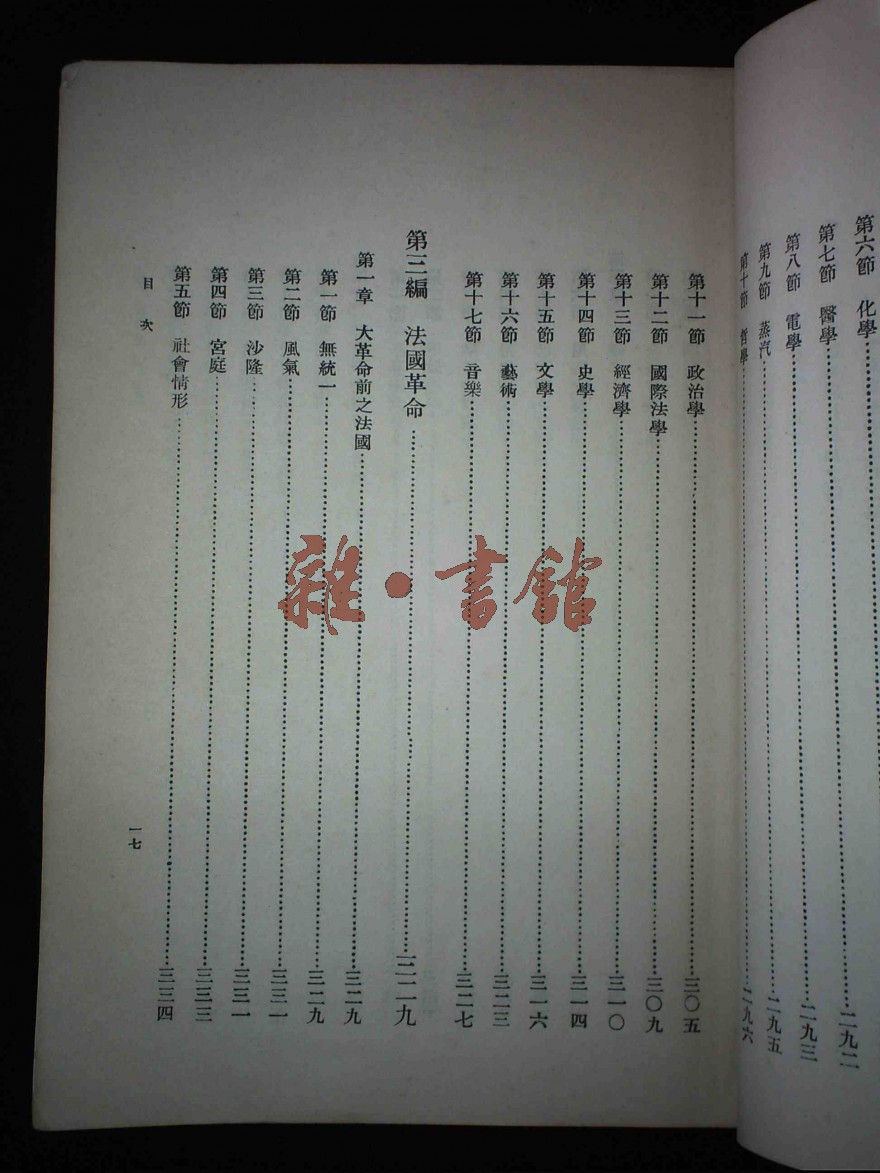 第六節　化學……二九二
第七節　醫學……二九三
第八節　電學……二九三
第九節　蒸汽……二九五
第十節　哲學……二九六
第十一節　政治學……三〇五
第十二節　國際法學……三〇九
第十三節　經濟學……三一〇
第十四節　史學……三一四
第十五節　文學……三一六
第十六節　藝術……三二三
第十七節　音樂……三二七
第三編　法國革命……三二九
第一章　大革命前之法國……三二九
第一節　無統一……三二九
第二節　風氣……三三一
第三節　沙隆……三三一
第四節　宮庭……三三三
第五節　社會情形……三三四
目次
一七
雜·書館